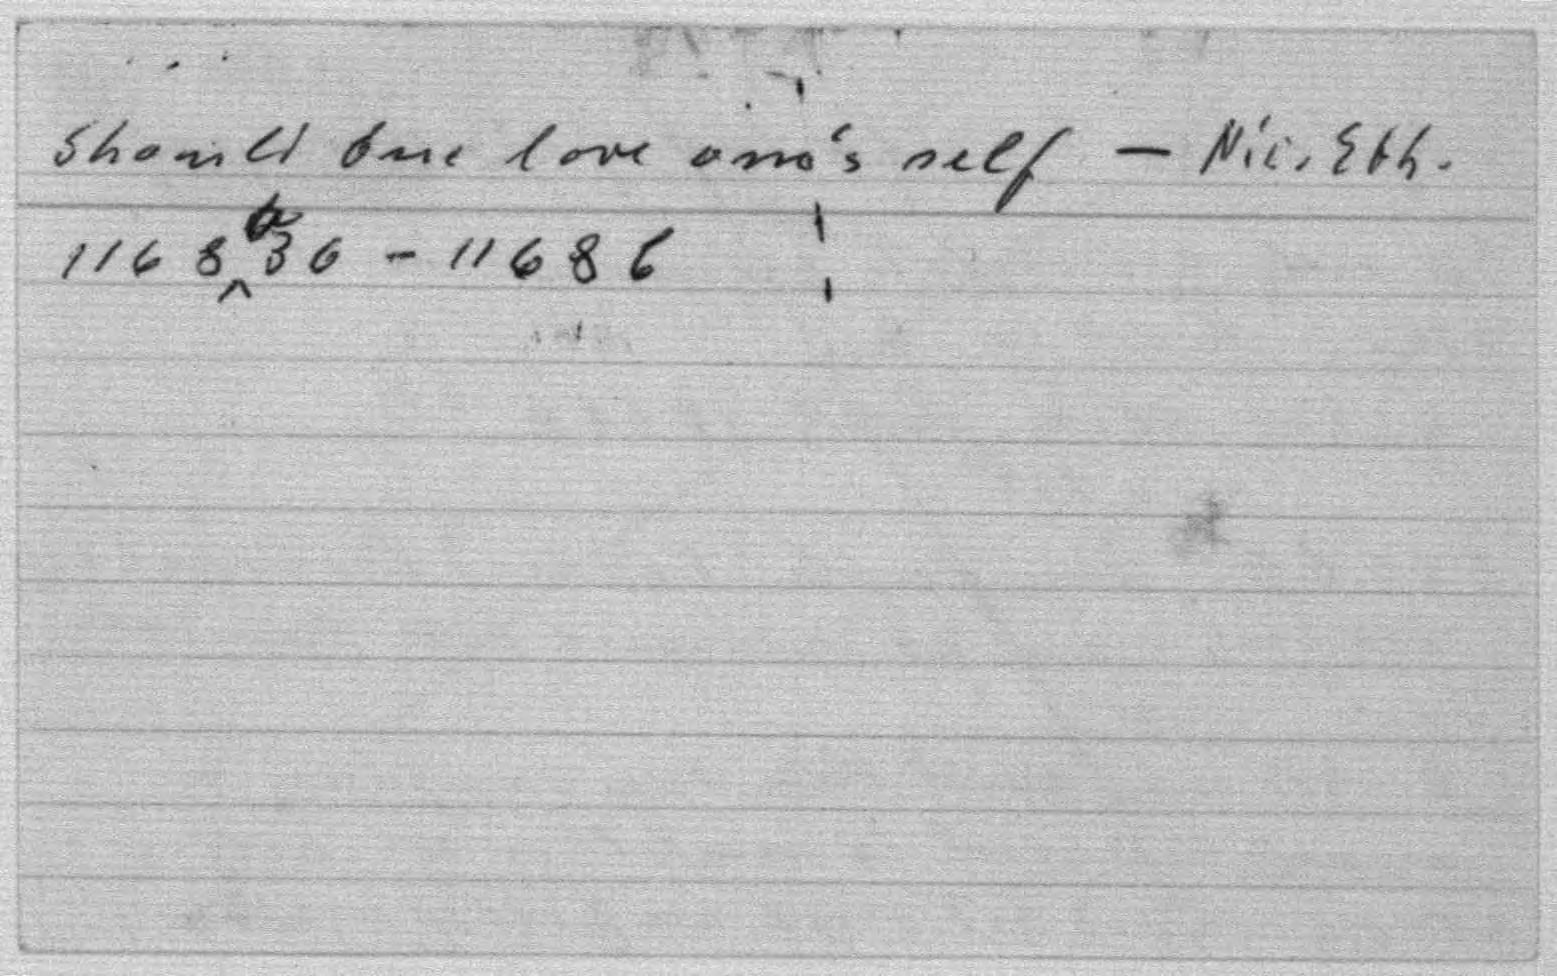 Should one love one's self — Nic. Eth.
1168a30 - 1168b